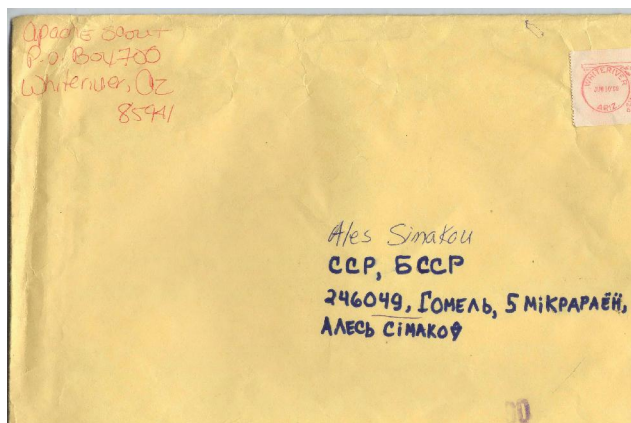 Apache Scout
P.O. Box 700
Whiteriver, Az
85941
WHITERIVER
ARIZ
Ales Simakou
ССР, БССР
246049, ГОМЕЛЬ, 5 МіКРАРАЁН,
АЛЕСЬ СіМАКОЎ